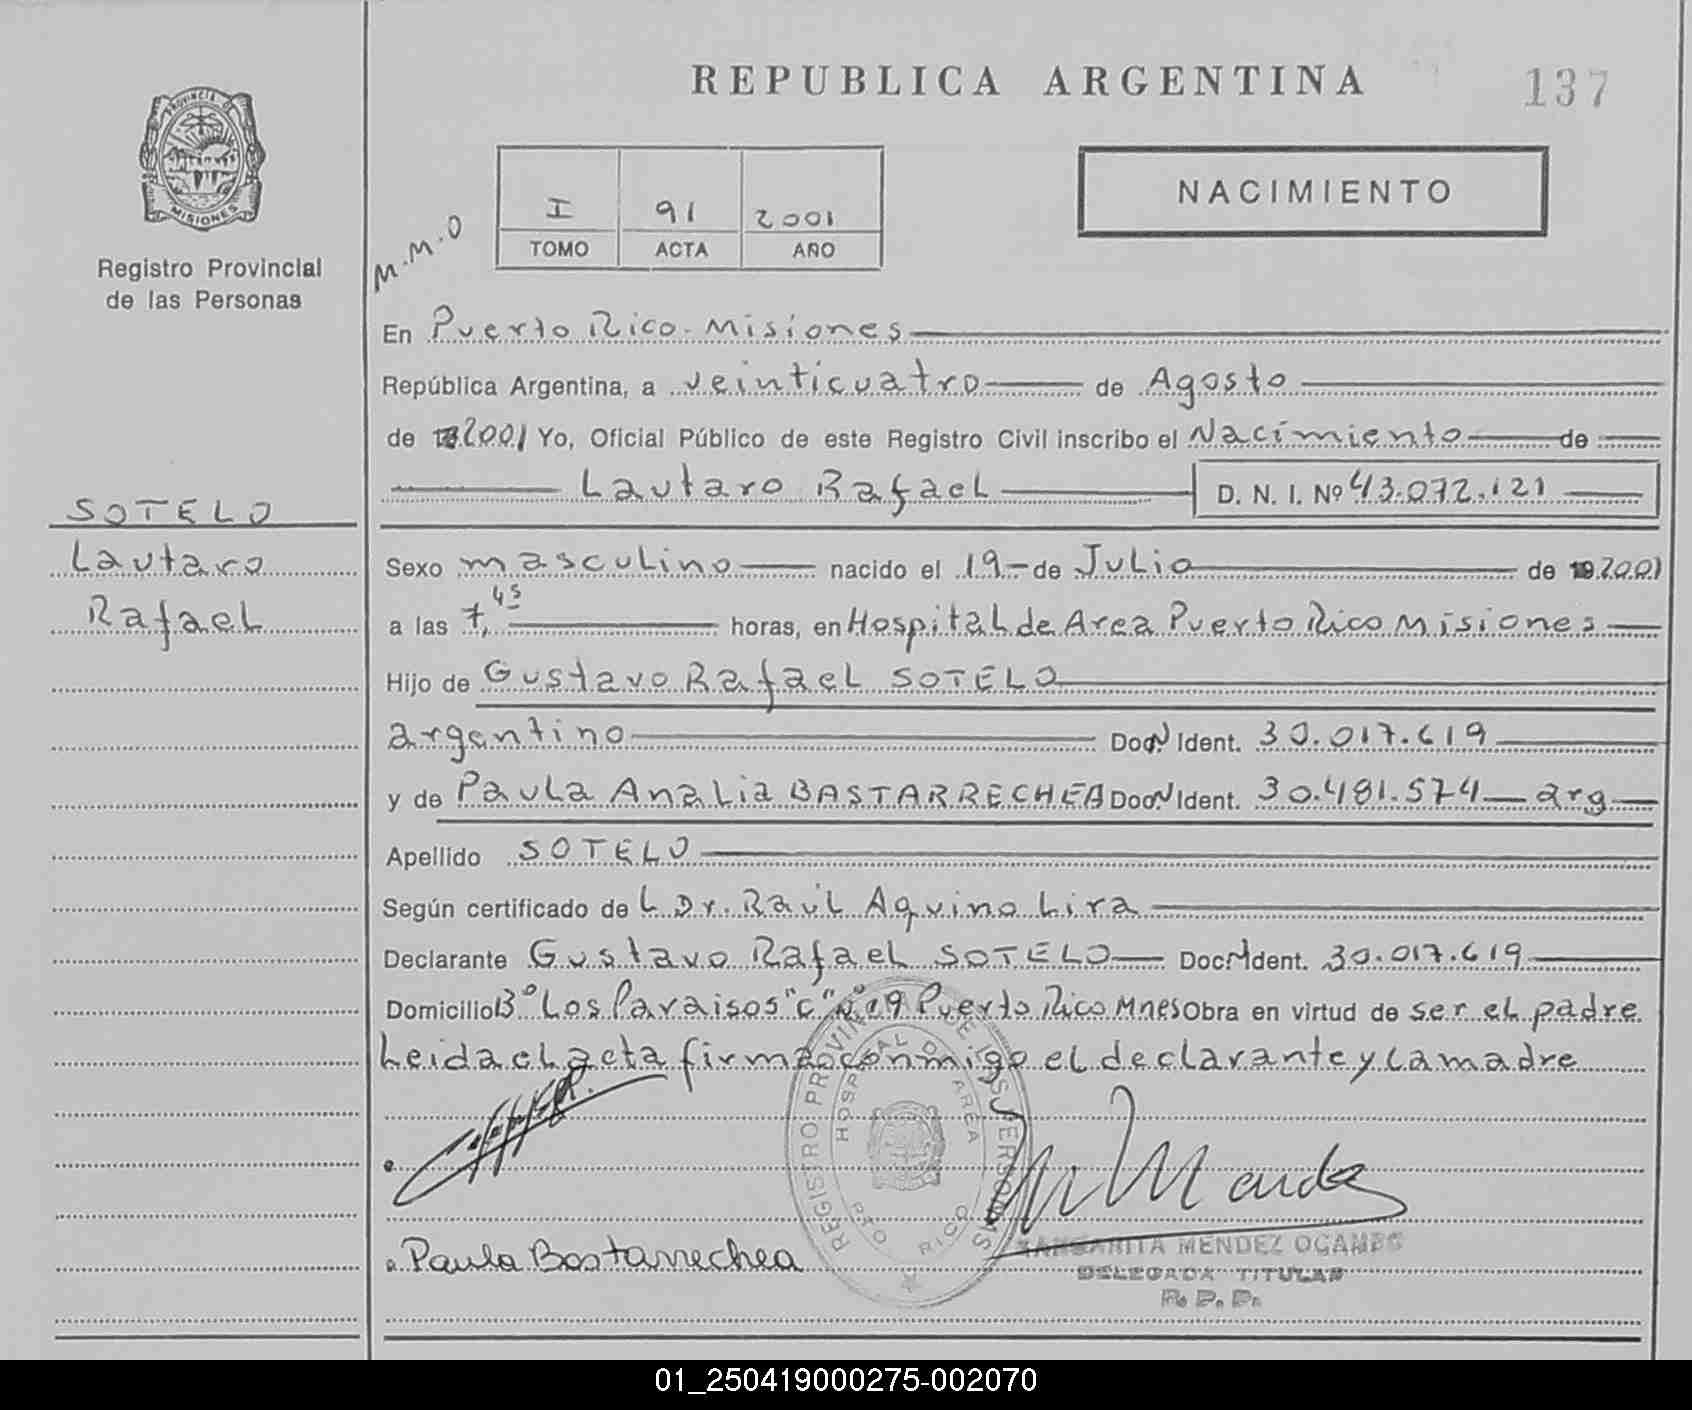 REPUBLICA ARGENTINA
137
PROVINCIA DE
MISIONES
Registro Provincial
de las Personas
NACIMIENTO
I 91 2001
TOMO ACTA AÑO
M.M.O
En Puerto Rico. Misiones
República Argentina, a veinticuatro de Agosto
de 2001 Yo, Oficial Público de este Registro Civil inscribo el Nacimiento de
Lautaro Rafael D. N. I. Nº 43.072.121
SOTELO
Lautaro
Rafael
Sexo masculino nacido el 19 de Julio de 2001
a las 7,45 horas, en Hospital de Area Puerto Rico Misiones
Hijo de Gustavo Rafael SOTELO
argentino Doc N Ident. 30.017.619
y de Paula Analia BASTARRECHEA Doc N Ident. 30.481.574 arg
Apellido SOTELO
Según certificado de L Dr. Raúl Aquino Lira
Declarante Gustavo Rafael SOTELO Doc N Ident. 30.017.619
Domicilio Bº Los Paraisos "C" Nº 19 Puerto Rico Mnes Obra en virtud de ser el padre
Leida el acta firma conmigo el declarante y la madre
REGISTRO PROVINCIAL DE LAS PERSONAS
HOSPITAL DE AREA
PTO RICO
Paula Bastarrechea
MARGARITA MENDEZ OCAMPO
DELEGADA TITULAR
R. P. P.
01_250419000275-002070